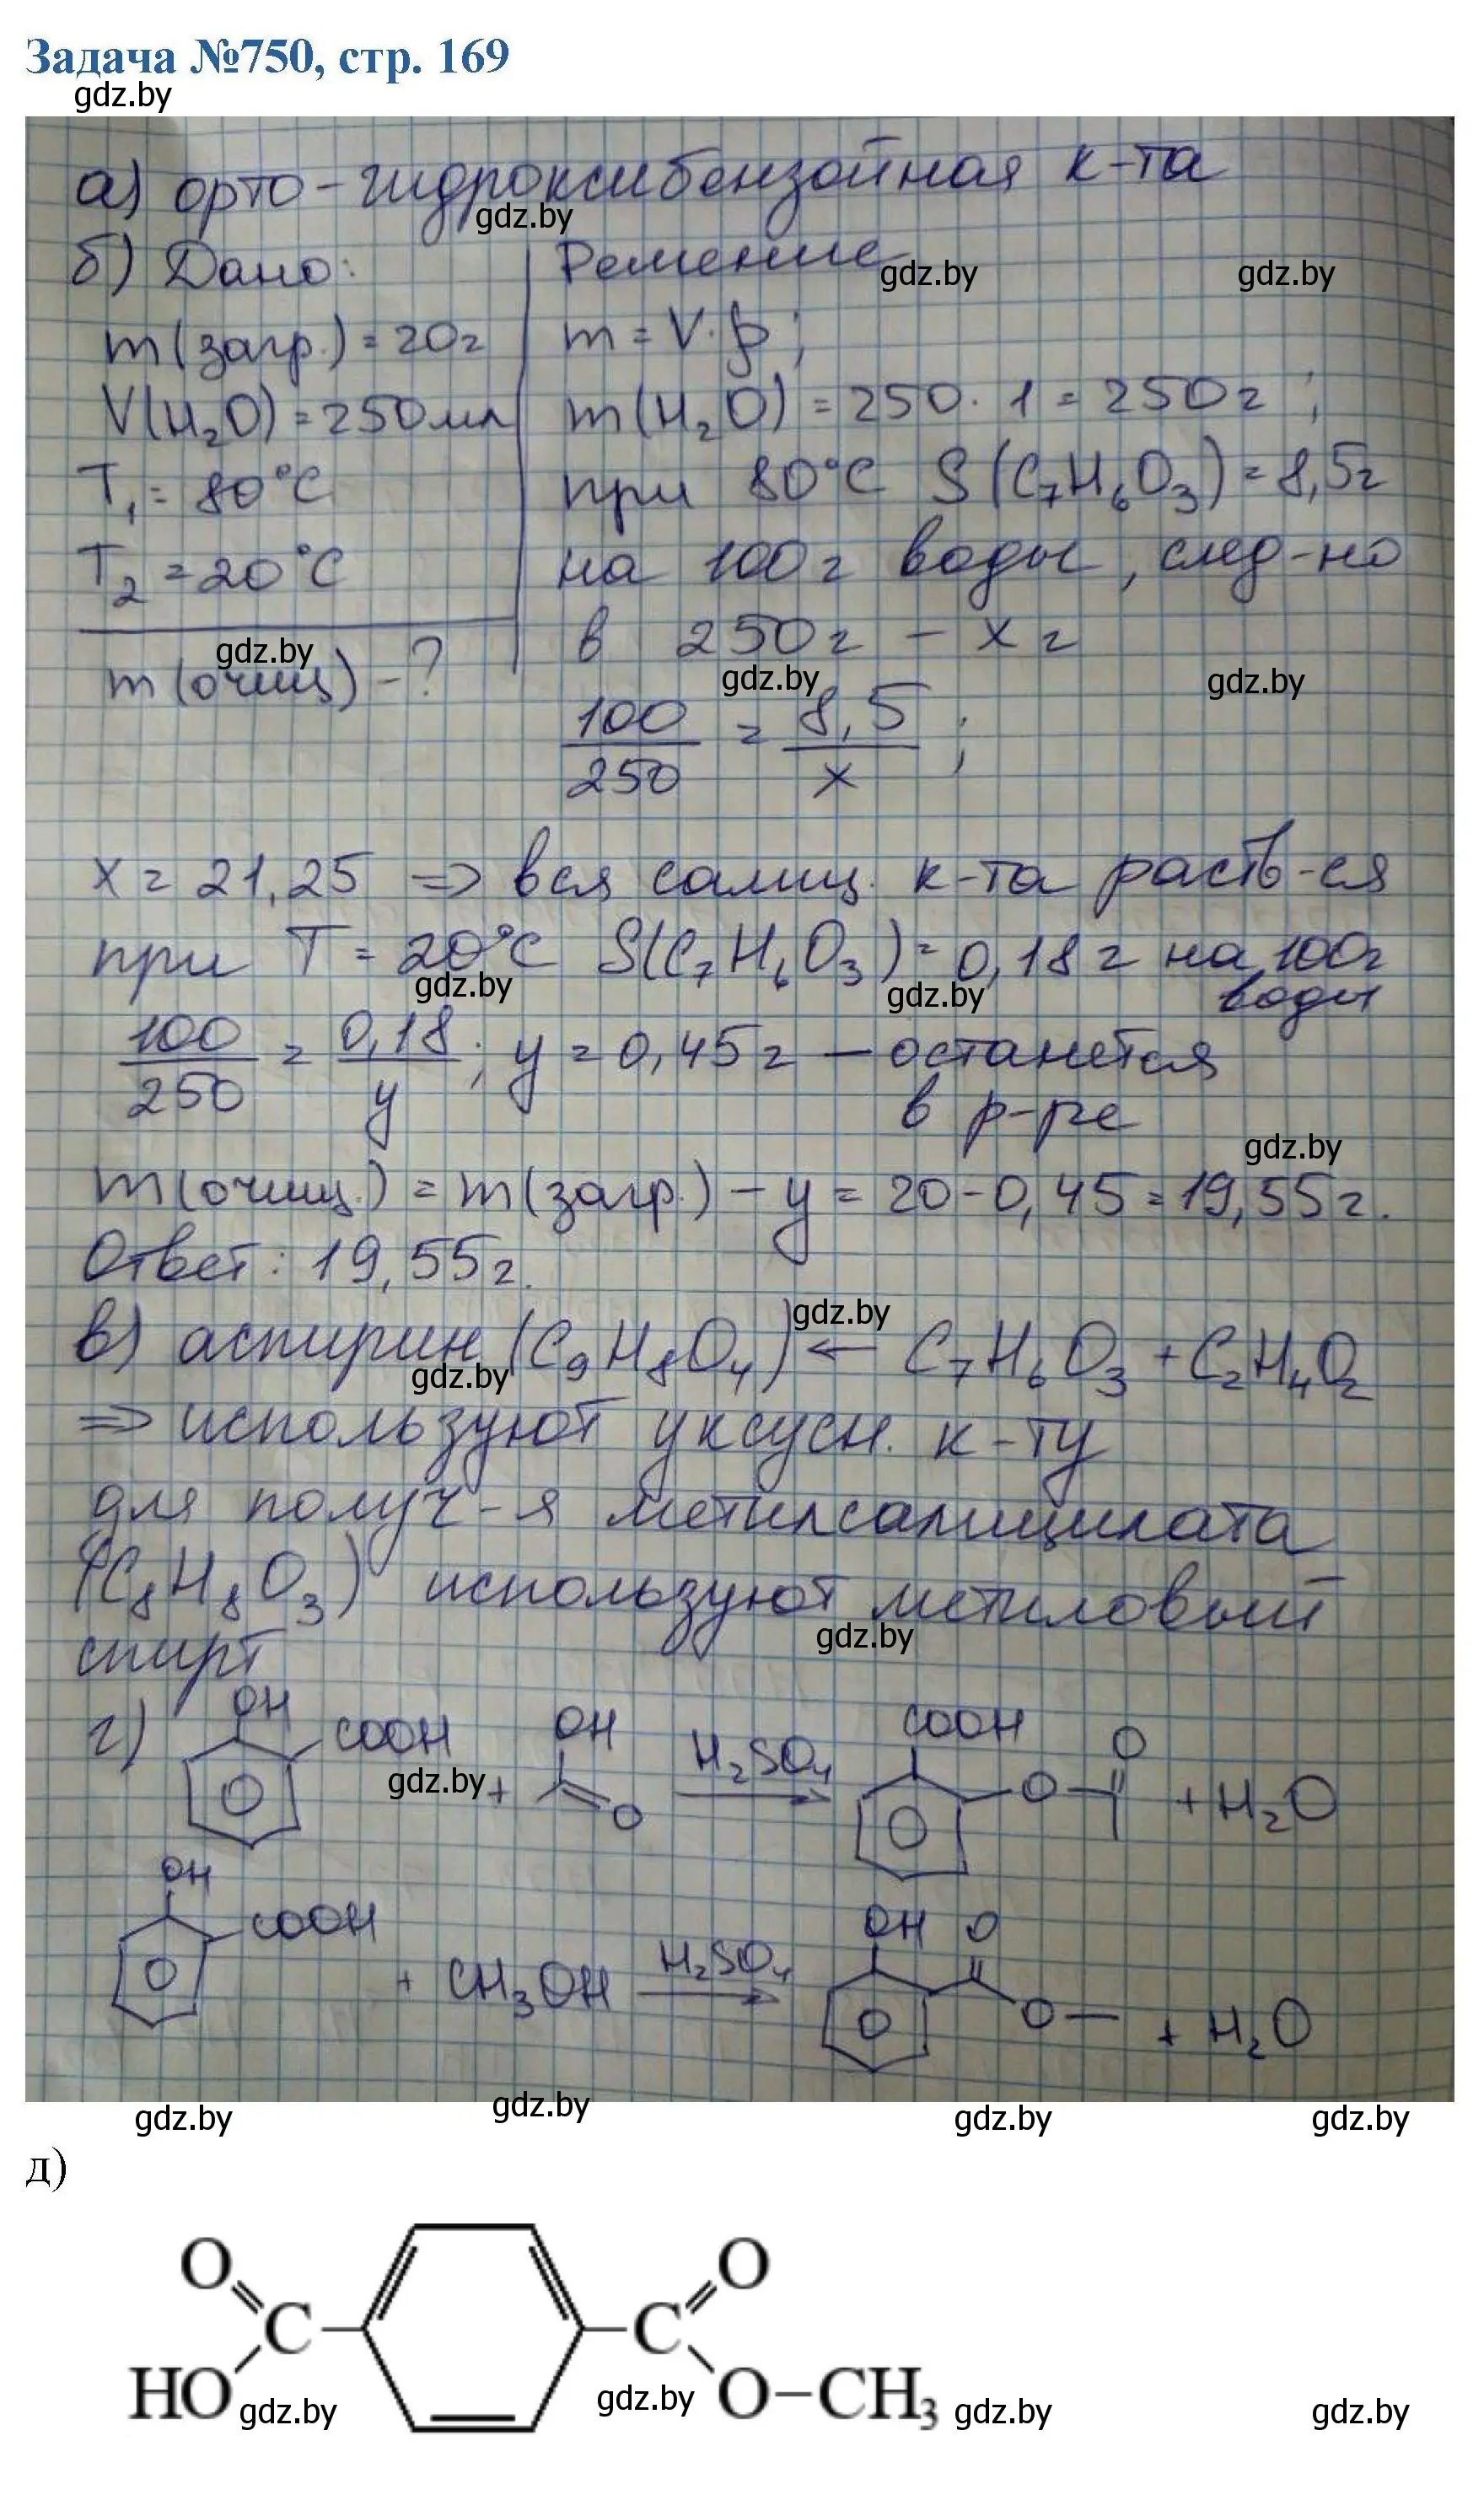 Задача №750, стр. 169
gdz.by
а) орто-гидроксибензойная к-та
gdz.by
б) Дано:
Решение
gdz.by
gdz.by
m(загр.) = 20г
m = V·ρ;
V(H₂O) = 250мл
m(H₂O) = 250·1 = 250г;
T₁ = 80°C
при 80°C S(C₇H₆O₃) = 8,5г
T₂ = 20°C
на 100г воды, след-но
gdz.by
в 250г – x г
m(очищ) – ?
gdz.by
gdz.by
100/250 = 8,5/x;
x = 21,25 ⇒ вся салиц. к-та раств-ся
при T = 20°C S(C₇H₆O₃) = 0,18г на 100г
воды
gdz.by
gdz.by
100/250 = 0,18/y; y = 0,45г – останется
в р-ре
gdz.by
m(очищ.) = m(загр.) – y = 20-0,45 = 19,55г.
Ответ: 19,55г.
gdz.by
в) аспирин (C₉H₈O₄) ← C₇H₆O₃ + C₂H₄O₂
gdz.by
⇒ используют уксусн. к-ту
для получ-я метилсалицилата
(C₈H₈O₃) используют метиловый
gdz.by
спирт
г)
OH
COOH
gdz.by
+
OH
O
H₂SO₄
→
COOH
O
O
+ H₂O
OH
COOH
+ CH₃OH
H₂SO₄
→
OH
O
O
+ H₂O
gdz.by
gdz.by
gdz.by
gdz.by
д)
O
O
C
C
HO
O–CH₃
gdz.by
gdz.by
gdz.by
gdz.by